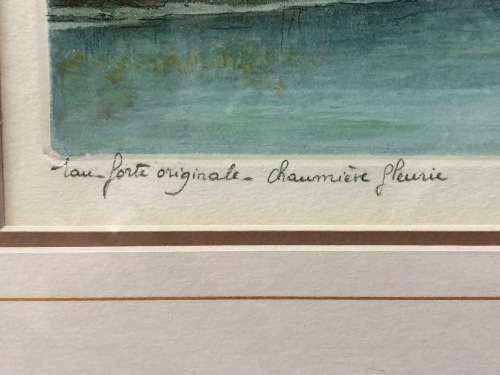 Eau-forte originale - Chaumière fleurie